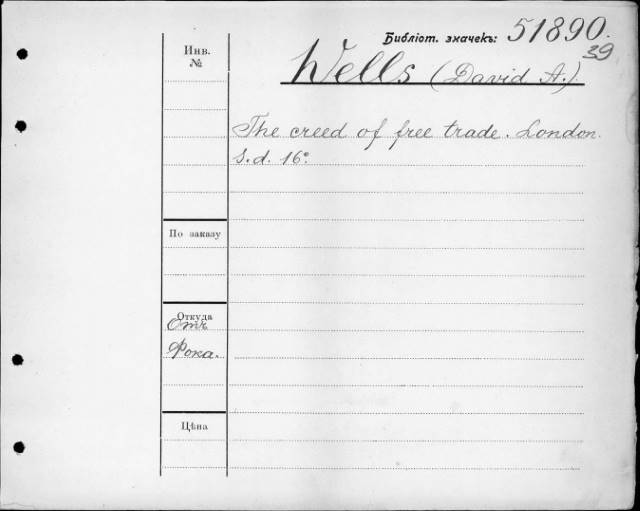 Библіот. значекъ: 51890.
39
Инв.
№
Wells (David A.)
The creed of free trade. London.
S.d. 16°
По заказу
Откуда
Отъ
Фока.
Цѣна